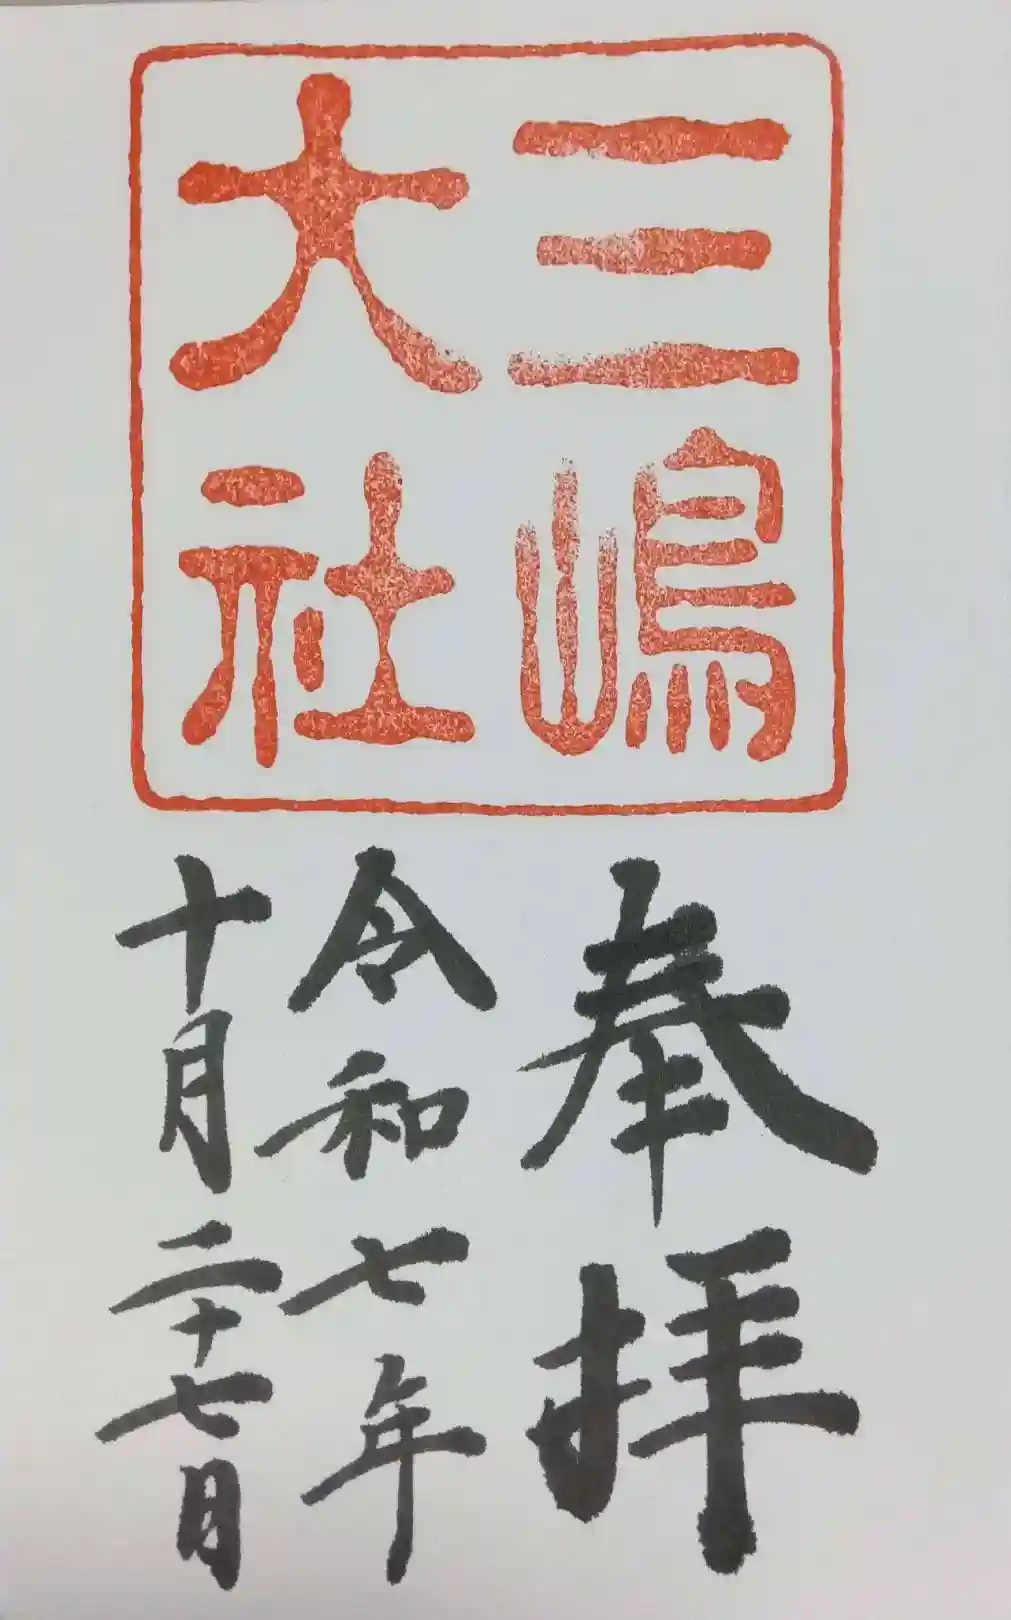 三嶋
大社
奉拝
令和七年
十月二十七日